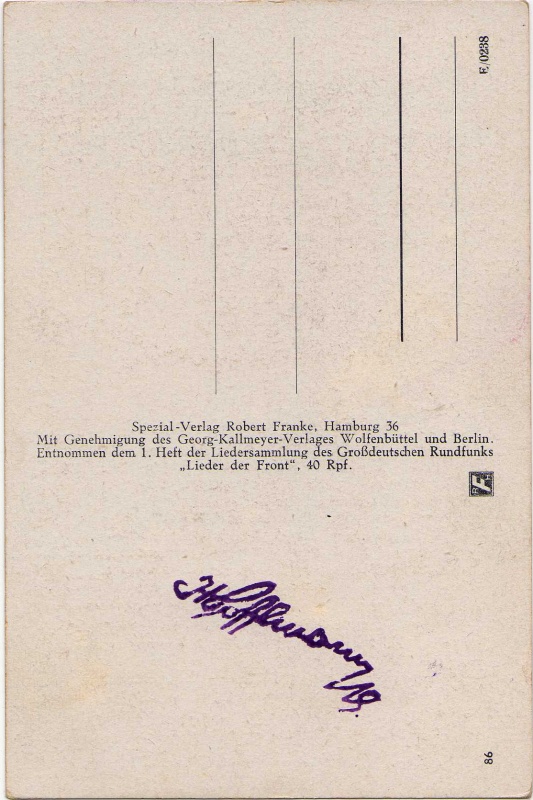 E/0238
Spezial-Verlag Robert Franke, Hamburg 36
Mit Genehmigung des Georg-Kallmeyer-Verlages Wolfenbüttel und Berlin.
Entnommen dem 1. Heft der Liedersammlung des Großdeutschen Rundfunks
„Lieder der Front“, 40 Rpf.
Hoffmann
86